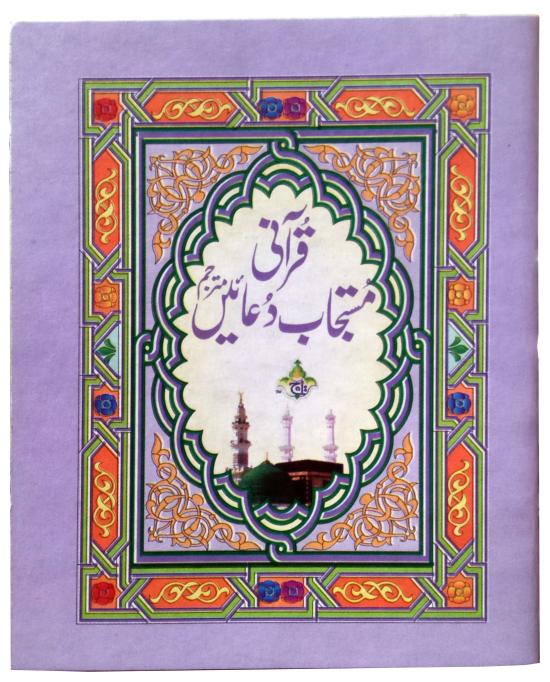 قرآنی
مُستجاب دُعائیں مترجم
تاج